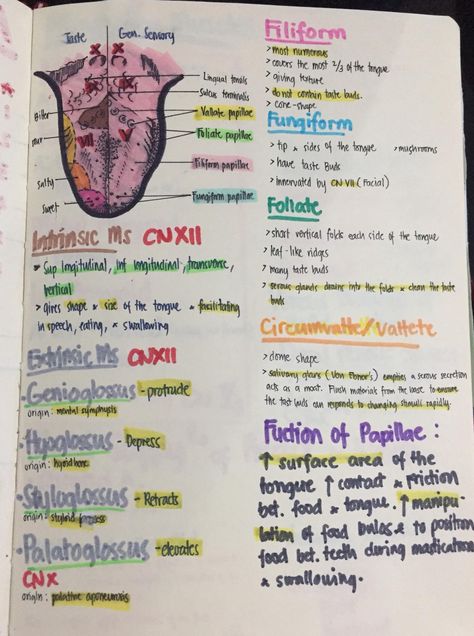 Taste
Gen. Sensory
X
X
X
X
VII
V
Bitter
sour
salty
sweet
Lingual tonsils
Sulcus terminalis
Vallate papillae
Foliate papillae
Filiform papillae
Fungiform papillae
Intrinsic Ms CN XII
Sup longitudinal, inf longitudinal, transverse,
vertical
> gives shape & size of the tongue & facilitating
in speech, eating, & swallowing
Extrinsic Ms CNXII
• Genioglossus - protrude
origin: mental symphysis
• Hyoglossus - Depress
origin: hyoid bone
• Styloglossus - Retracts
origin: styloid process
• Palatoglossus - elevates
CN X
origin: palatine aponeurosis
Filiform
> most numerous
> covers the most 2/3 of the tongue
> giving texture
> do not contain taste buds.
> cone-shape
Fungiform
> tip & sides of the tongue > mushrooms
> have taste Buds
> innervated by CN VII (Facial)
Foliate
> short vertical folds each side of the tongue
> leaf-like ridges
> many taste buds
> serous glands drains into the folds & clean the taste
buds
Circumvalte/Vallete
> dome shape
> salivary glans (Von Ebner's) empties a serous secretion
acts as a moat. Flush materials from the base. to ensure
the tast buds can responds to changing stimuli rapidly.
Fuction of Papillae:
↑ surface area of the
tongue ↑ contact & friction
bet. food & tongue. ↑ manipu
lation of food bolus & to position
food bet. teeth during mastication
& swallowing.